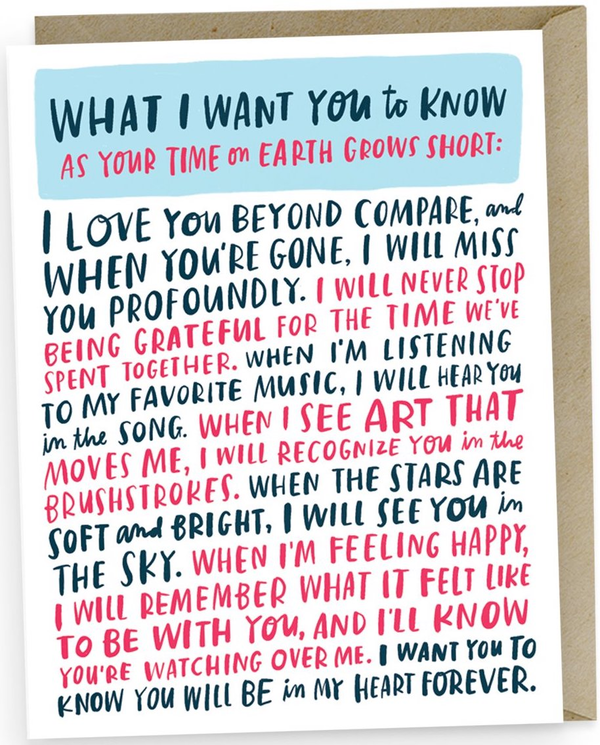 WHAT I WANT YOU to KNOW
AS YOUR TIME on EARTH GROWS SHORT:
I LOVE YOU BEYOND COMPARE, and
WHEN YOU'RE GONE, I WILL MISS
YOU PROFOUNDLY. I WILL NEVER STOP
BEING GRATEFUL FOR THE TIME WE'VE
SPENT TOGETHER. WHEN I'M LISTENING
TO MY FAVORITE MUSIC, I WILL HEAR YOU
in the SONG. WHEN I SEE ART THAT
MOVES ME, I WILL RECOGNIZE YOU in the
BRUSHSTROKES. WHEN THE STARS ARE
SOFT and BRIGHT, I WILL SEE YOU in
THE SKY. WHEN I'M FEELING HAPPY,
I WILL REMEMBER WHAT IT FELT LIKE
TO BE WITH YOU, AND I'LL KNOW
YOU'RE WATCHING OVER ME. I WANT YOU TO
KNOW YOU WILL BE in MY HEART FOREVER.